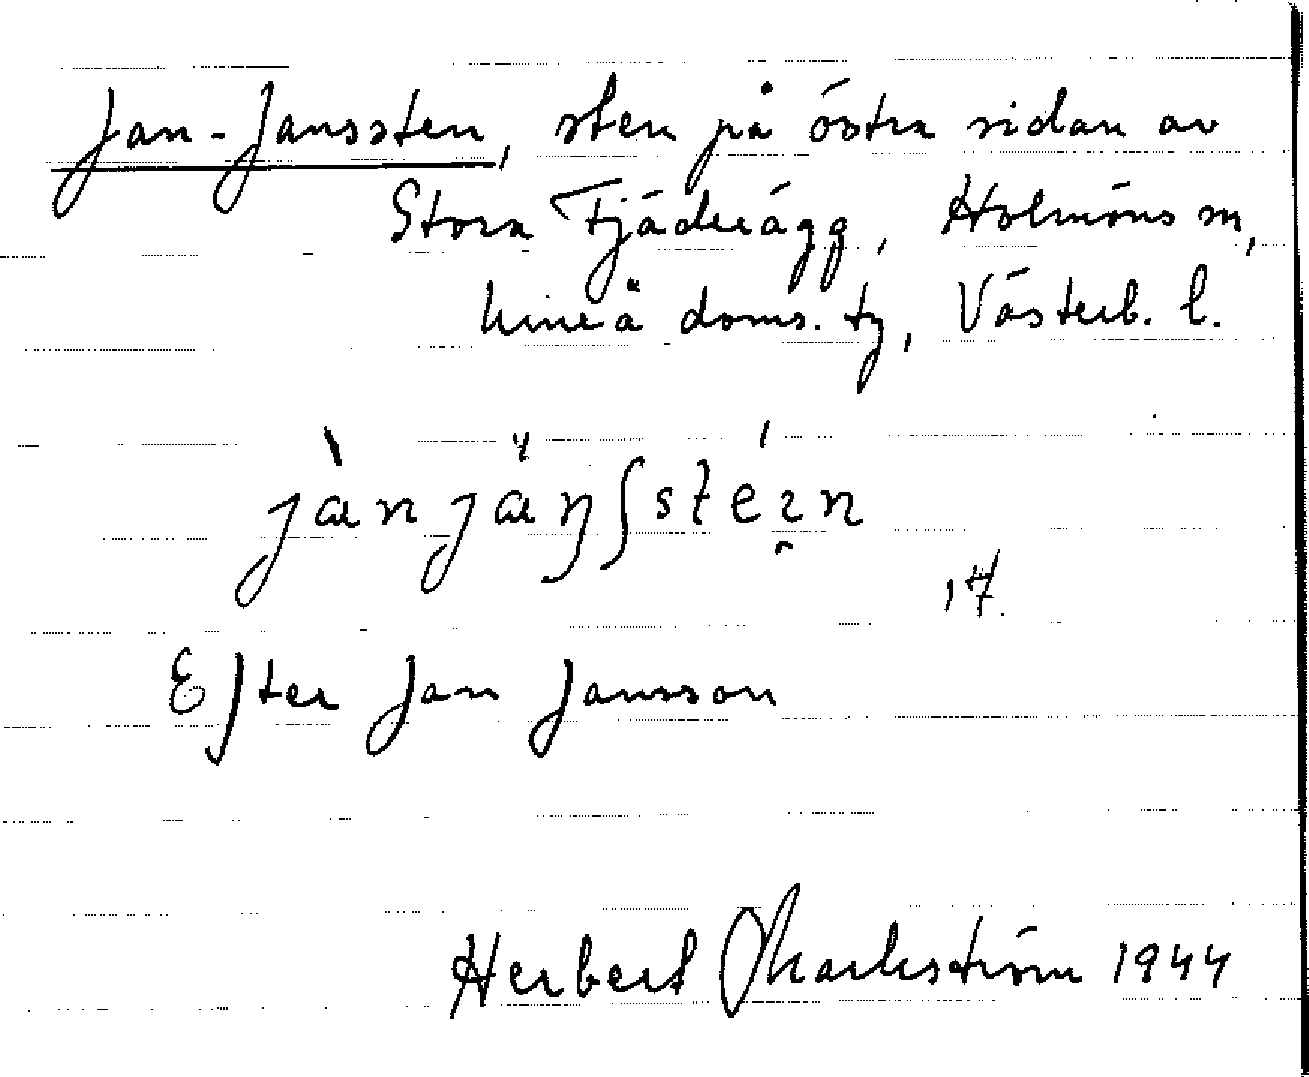 Jan-Janssten, sten på östra sidan av
Stora Fjäderägg, Holmöns sn,
Umeå doms. tg, Västerb. l.
Efter Jan Jansson
Herbert Markström 1944